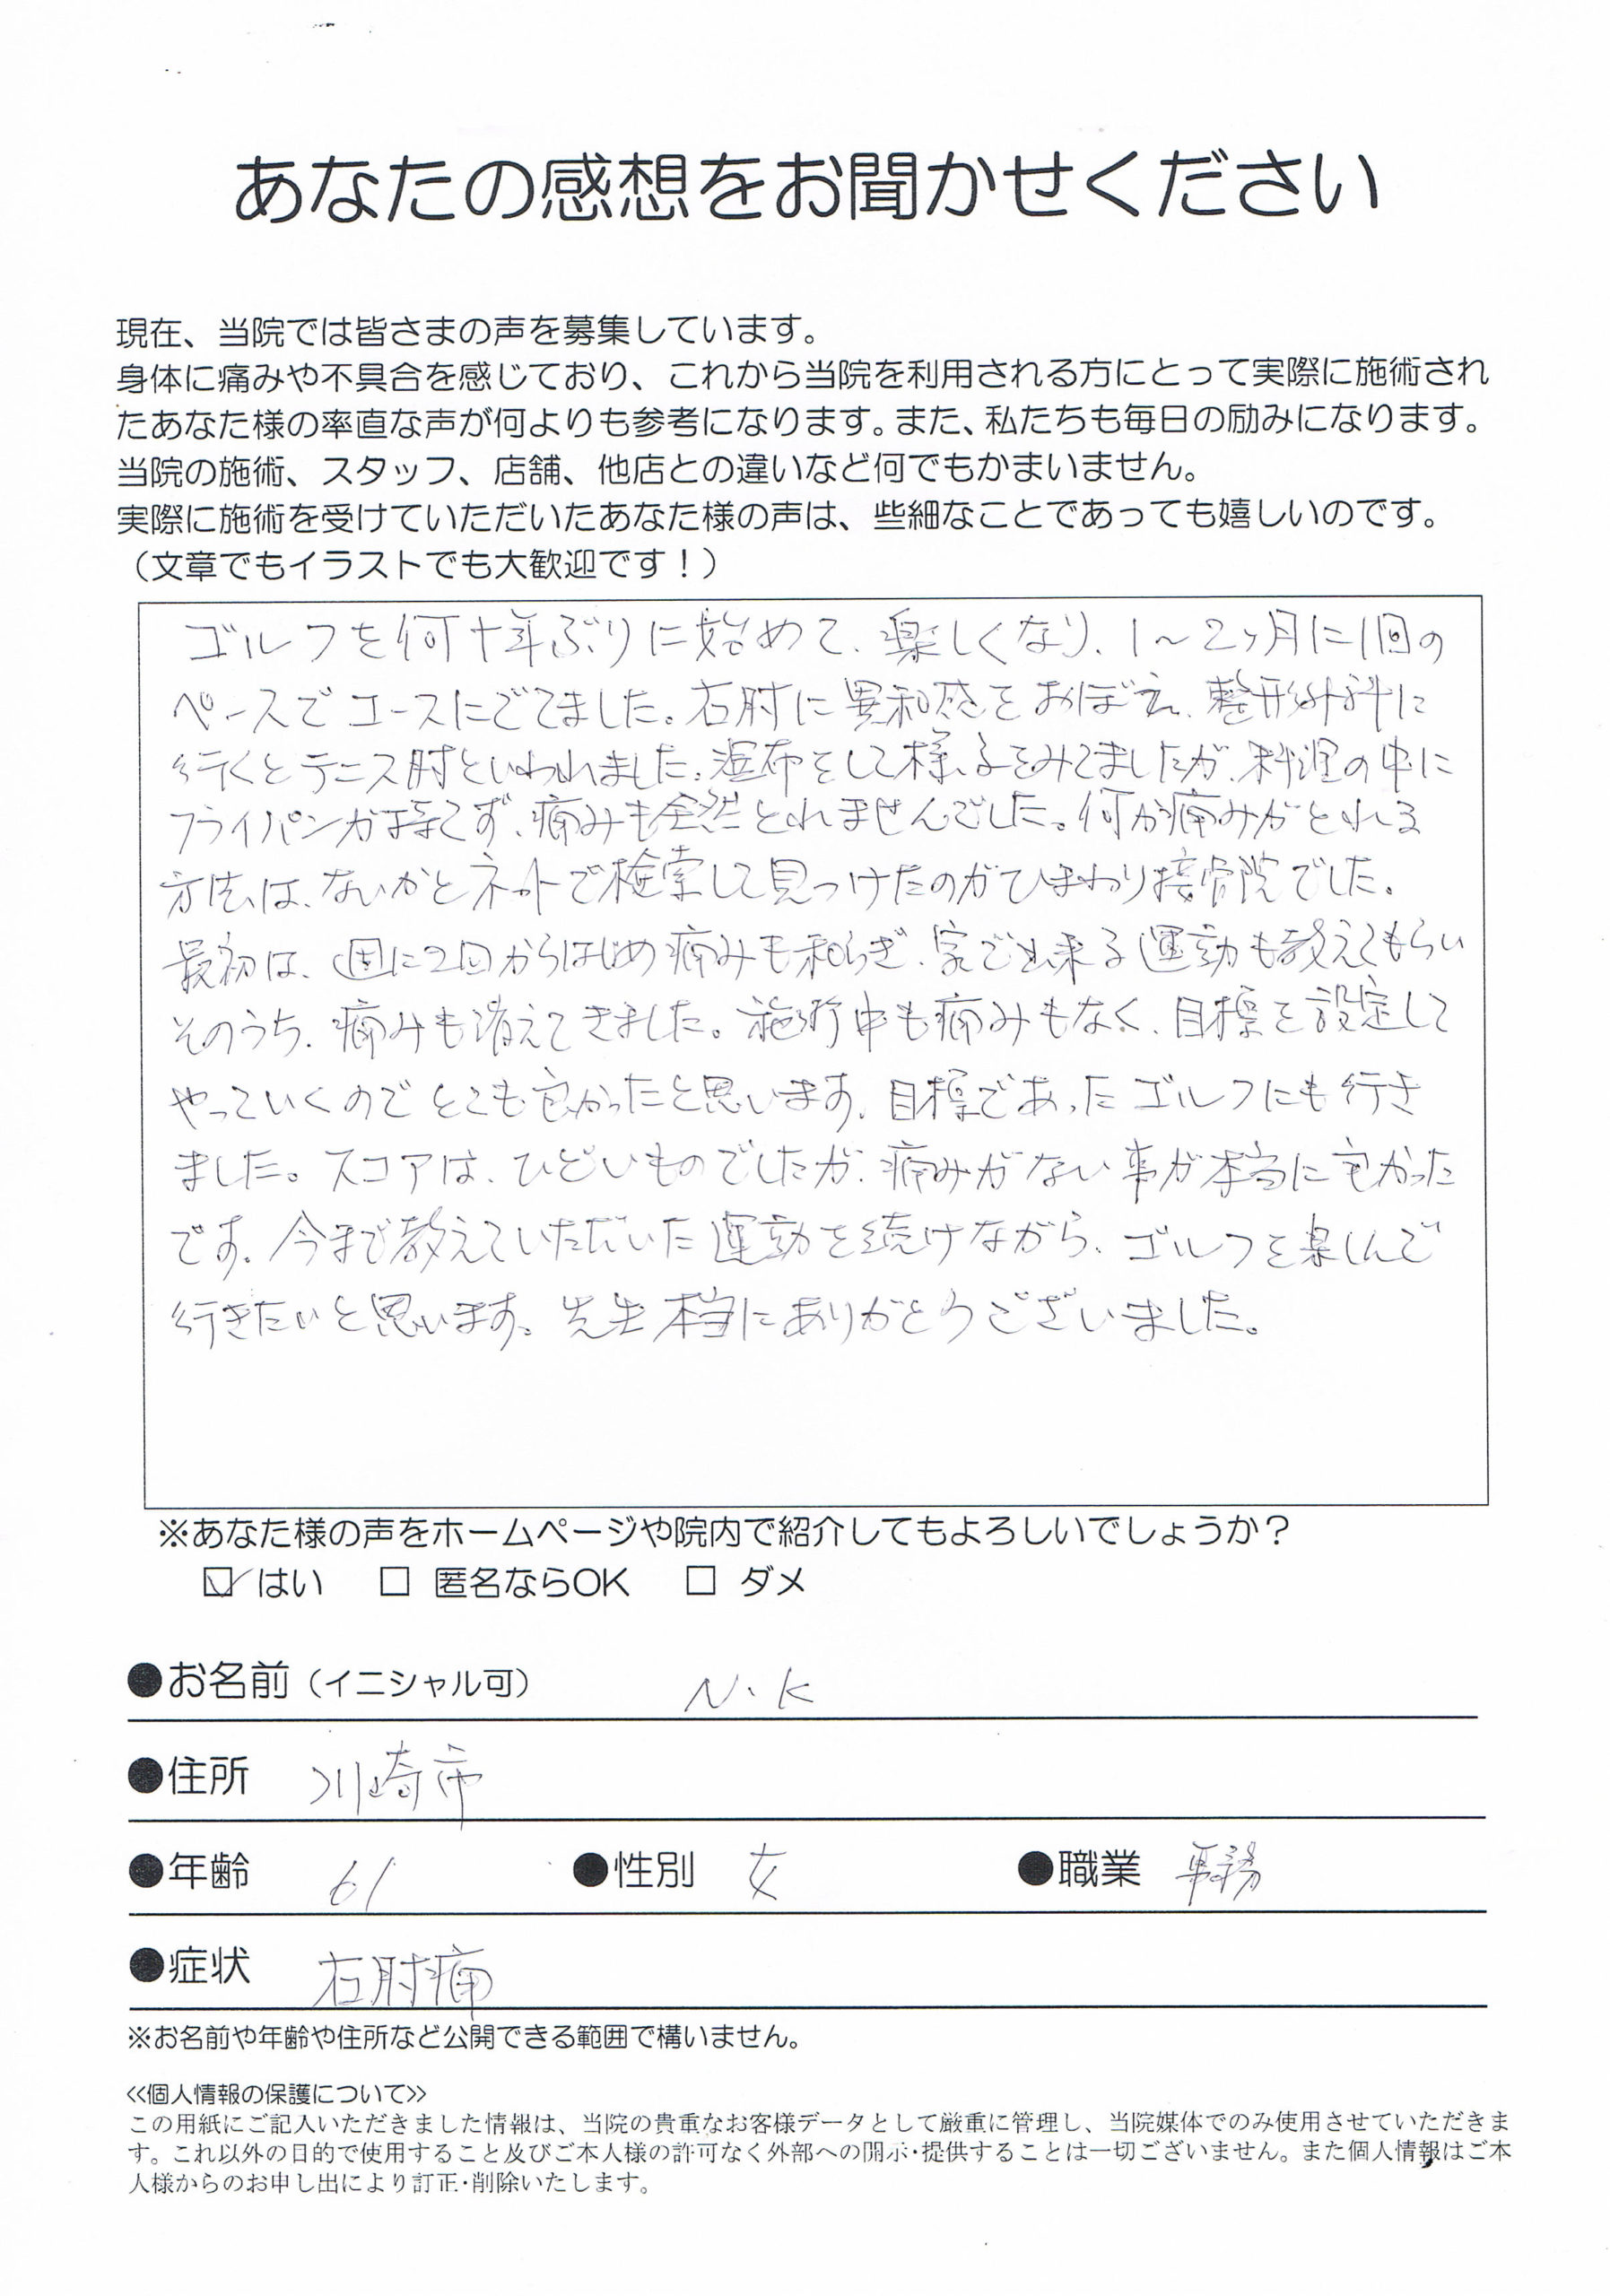 あなたの感想をお聞かせください
現在、当院では皆さまの声を募集しています。
身体に痛みや不具合を感じており、これから当院を利用される方にとって実際に施術され
たあなた様の率直な声が何よりも参考になります。また、私たちも毎日の励みになります。
当院の施術、スタッフ、店舗、他店との違いなど何でもかまいません。
実際に施術を受けていただいたあなた様の声は、些細なことであっても嬉しいのです。
（文章でもイラストでも大歓迎です！）
ゴルフを何十年ぶりに始めて、楽しくなり、1〜2ヶ月に1回の
ペースでコースにでてました。右肘に異和感をおぼえ、整形外科に
行くとテニス肘といわれました。湿布をして様子をみてましたが、料理の中に
フライパンが持てず、痛みも全然とれませんでした。何か痛みがとれる
方法は、ないかとネットで検索して見つけたのがひまわり接骨院でした。
最初は、週に2回からはじめ痛みも和らぎ、家で出来る運動も教えてもらい
そのうち、痛みも消えてきました。施術中も痛みもなく、目標を設定して
やっていくのでとても良かったと思います。目標であったゴルフにも行き
ました。スコアは、ひどいものでしたが、痛みがない事が本当に良かった
です。今まで教えていただいた運動を続けながら、ゴルフを楽しんで
行きたいと思います。先生本当にありがとうございました。
※あなた様の声をホームページや院内で紹介してもよろしいでしょうか？
☑ はい □ 匿名ならOK □ ダメ
●お名前（イニシャル可） N.K
●住所 川崎市
●年齢 61 ●性別 女 ●職業 事務
●症状 右肘痛
※お名前や年齢や住所など公開できる範囲で構いません。
≪個人情報の保護について≫
この用紙にご記入いただきました情報は、当院の貴重なお客様データとして厳重に管理し、当院媒体でのみ使用させていただきま
す。これ以外の目的で使用すること及びご本人様の許可なく外部への開示・提供することは一切ございません。また個人情報はご本
人様からのお申し出により訂正・削除いたします。